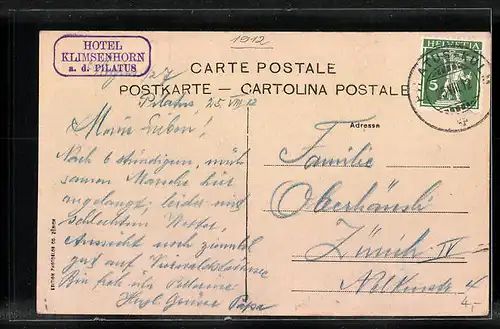 1912
HOTEL
KLIMSENHORN
a. d. PILATUS
HELVETIA
5
CARTE POSTALE
POSTKARTE - CARTOLINA POSTALE
Pilatus, 25. VIII 12
Adresse
Meine Lieben!
Nach 6 stündigen, müh
samen Marsche hier
angelangt, leider und
schlechtem Wetter,
Aussicht noch ziemlich
gut auf Vierwaldstättersee
Bin froh üb.
Hzgl. Grüsse Papa
Familie
Oberhänsli
Zürich IV
4
4,-
EDITION PHOTOGLOB CO. ZÜRICH